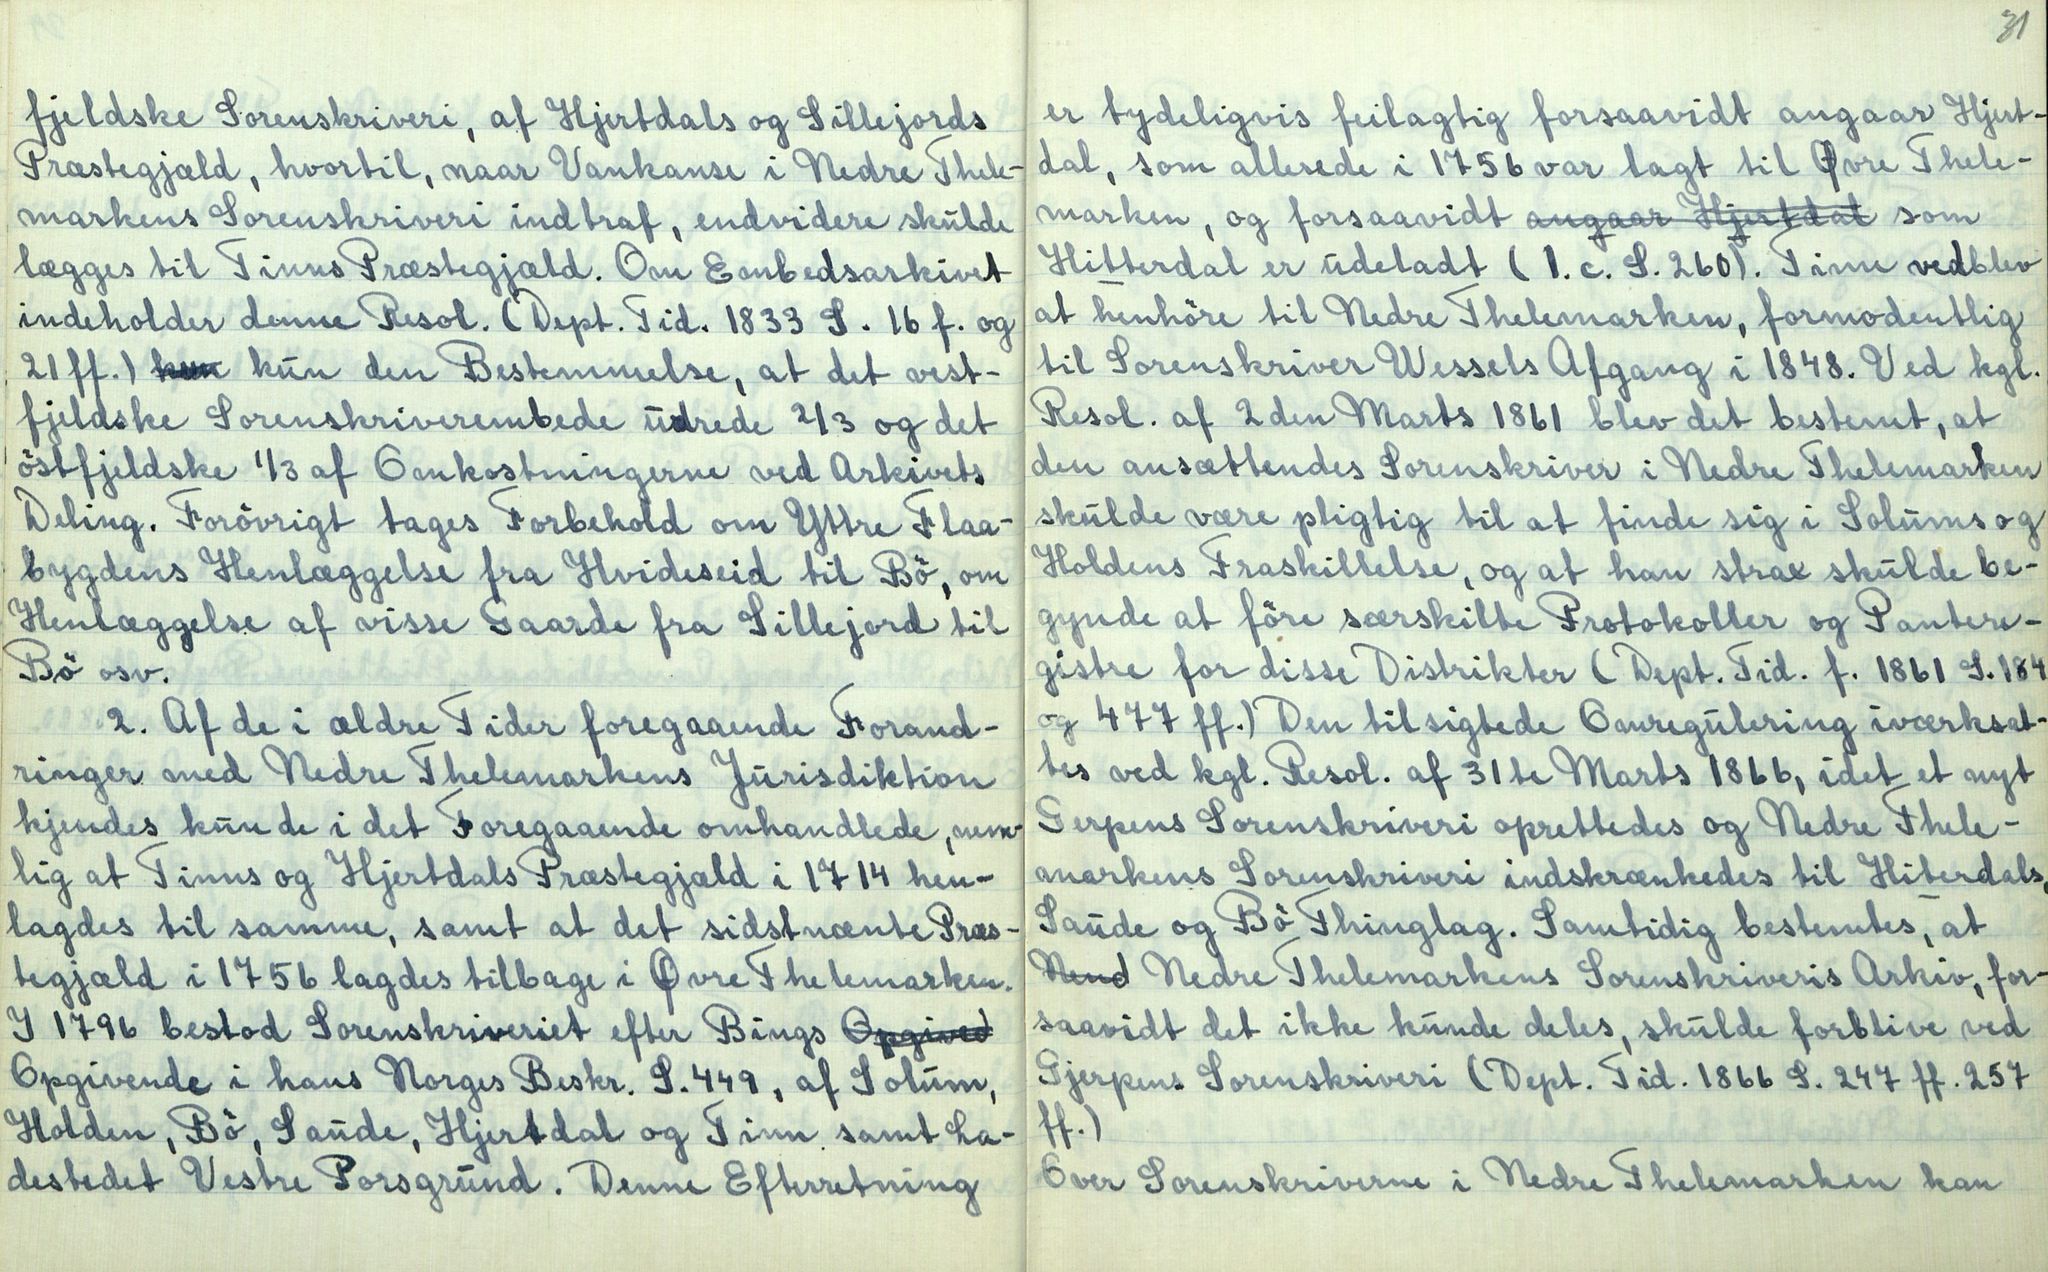 fjeldske Sorenskriveri, af Hjertdals og Sillejords
Præstegjæld, hvortil, naar Vankanse i Nedre Thele-
markens Sorenskriveri indtraf, endvidere skulde
lægges til Tinns Præstegjæld. Om Embedsarkivet
indeholder denne Resol. (Dept. Tid. 1833 S. 16 f. og
21 ff.) kun kun den Bestemmelse, at det vest-
fjeldske Sorenskriverembede udrede 2/3 og det
östfjeldske 1/3 af Omkostningerne ved Arkivets
Deling. Forövrigt tages Forbehold om Yttre Flaa-
bygdens Henlæggelse fra Hvideseid til Bö, om
Henlæggelse af visse Gaarde fra Sillejord til
Bö osv.
2. Af de i ældre Tider foregaaende Forand-
ringer med Nedre Thelemarkens Jurisdiktion
kjendes kun de i det Foregaaende omhandlede, nem-
lig at Tinns og Hjertdals Præstegjæld i 1714 hen-
lagdes til samme, samt at det sidstnænte Præs-
tegjæld i 1756 lagdes tilbage i Øvre Thelemarken.
I 1796 bestod Sorenskriveriet efter Bings Opgived
Opgivende i hans Norges Beskr. S. 449, af Solum,
Holden, Bö, Saude, Hjertdal og Tinn samt La-
destedet Vestre Porsgrund. Denne Efterretning
31
er tydeligvis feilagtig forsaavidt angaar Hjert-
dal, som allerede i 1756 var lagt til Øvre Thele-
marken, og forsaavidt angaar Hjertdal som
Hitterdal er udeladt (l.c. S. 260). Tinn vedblev
at henhöre til Nedre Thelemarken, formodentlig
til Sorenskriver Wessels Afgang i 1848. Ved kgl.
Resol. af 2den Marts 1861 blev det bestemt, at
den ansættendes Sorenskriver i Nedre Thelemarken
skulde være pligtig til at finde sig i Solums og
Holdens Fraskillelse, og at han strax skulde be-
gynde at före særskilte Protokoller og Pantere-
gistre for disse Distrikter (Dept. Tid. f. 1861 S. 184
og 477 ff.) Den tilsigtede Omregulering iværksat-
tes ved kgl. Resol. af 31te Marts 1866, idet et nyt
Gerpens Sorenskriveri oprettedes og Nedre Thele-
markens Sorenskriveri indskrænkedes til Hiterdals,
Saude og Bö Thinglag. Samtidig bestemtes, at
Nend Nedre Thelemarkens Sorenskriveris Arkiv, for-
saavidt det ikke kunde deles, skulde forblive ved
Gjerpens Sorenskriveri (Dept. Tid. 1866 S. 247 ff. 257
ff.)
Over Sorenskriverne i Nedre Thelemarken kan